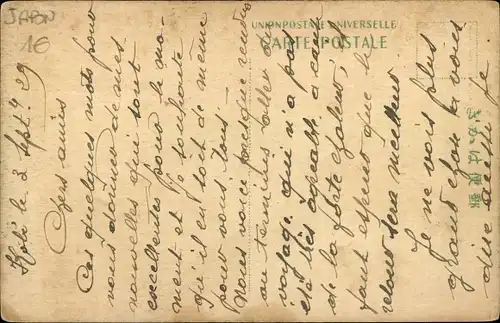 JAPON
16
UNION POSTALE UNIVERSELLE
CARTE POSTALE
きかは便郵
Kobé le 3 Sept. 29
Chers amis
Ces quelques mots pour
vous donner de mes
nouvelles qui sont
excellentes pour le mo-
ment et je souhaite
qu'il en soit de même
pour vous tous.
Nous voici presque rendus
au terminus aller du
voyage qui n'a pas
été très agréable à cause
de la forte chaleur, il
faut esperer que le
retour sera meilleur
Je ne vois plus
grand chose à vous
dire